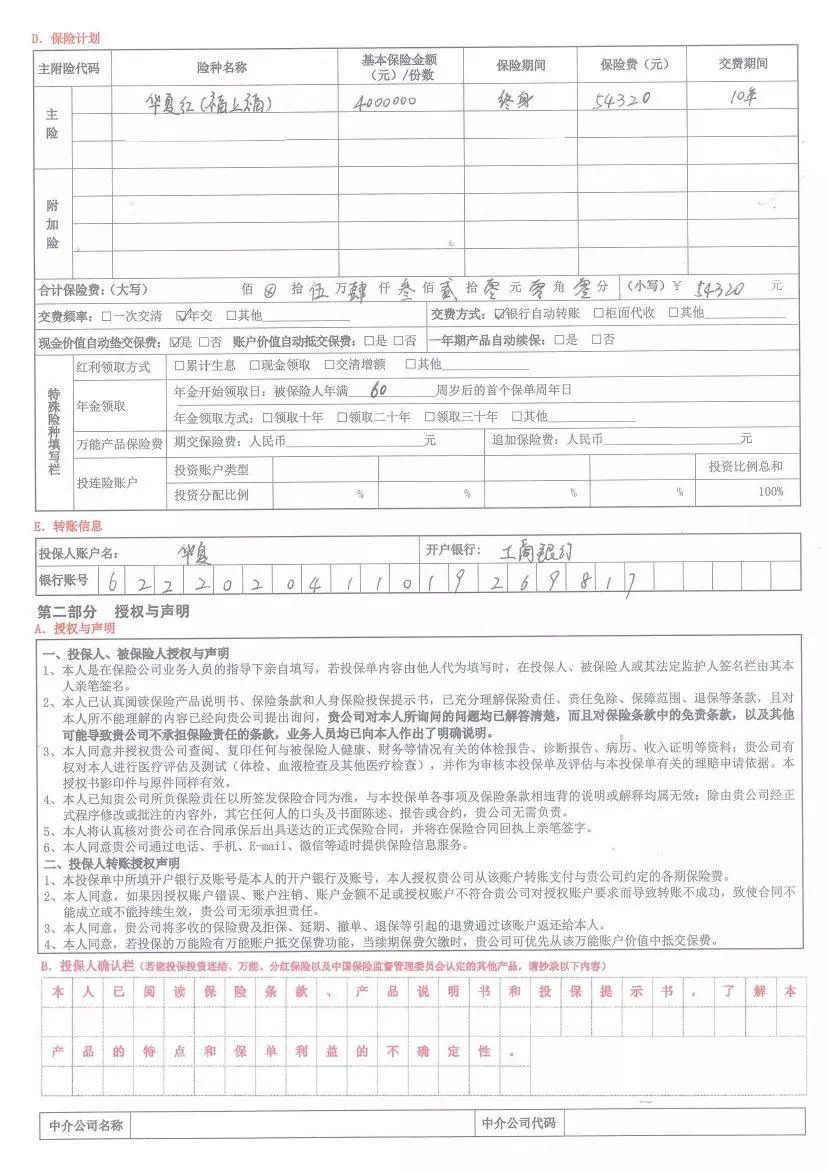 D. 保险计划
主附险代码 险种名称 基本保险金额（元）/份数 保险期间 保险费（元） 交费期间
主险 华夏红(福上福) 4000000 终身 54320 10年
附加险
合计保险费：（大写） 佰 拾 伍 万 肆 仟 叁 佰 贰 拾 零 元 零 角 零 分 （小写）￥ 54320 元
交费频率：□一次交清 ☑年交 □其他 交费方式：☑银行自动转账 □柜面代收 □其他
现金价值自动垫交保费：☑是 □否 账户价值自动抵交保费：□是 □否 一年期产品自动续保：□是 □否
特殊险种填写栏
红利领取方式 □累计生息 □现金领取 □交清增额 □其他
年金领取 年金开始领取日：被保险人年满 60 周岁后的首个保单周年日
年金领取方式：□领取十年 □领取二十年 □领取三十年 □其他
万能产品保险费 期交保险费：人民币 元 追加保险费：人民币 元
投连险账户 投资账户类型 投资比例总和
投资分配比例 % % % % 100%
E. 转账信息
投保人账户名： 华夏 开户银行： 工商银行
银行账号 6222020411019269817
第二部分 授权与声明
A. 授权与声明
一、投保人、被保险人授权与声明
1、本人是在保险公司业务人员的指导下亲自填写，若投保单内容由他人代为填写时，在投保人、被保险人或其法定监护人签名栏由其本
人亲笔签名。
2、本人已认真阅读保险产品说明书、保险条款和人身保险投保提示书，已充分理解保险责任、责任免除、保障范围、退保等条款，且对
本人所不能理解的内容已经向贵公司提出询问，贵公司对本人所询问的问题均已解答清楚，而且对保险条款中的免责条款，以及其他
可能导致贵公司不承担保险责任的条款，业务人员均已向本人作出了明确说明。
3、本人同意并授权贵公司查阅、复印任何与被保险人健康、财务等情况有关的体检报告、诊断报告、病历、收入证明等资料；贵公司有
权对本人进行医疗评估及测试（体检、血液检查及其他医疗检查），并作为审核本投保单及评估与本投保单有关的理赔申请依据。本
授权书影印件与原件同样有效。
4、本人已知贵公司所负保险责任以所签发保险合同为准，与本投保单各事项及保险条款相违背的说明或解释均属无效；除由贵公司经正
式程序修改或批注的内容外，其它任何人的口头及书面陈述、报告或合约，贵公司无需负责。
5、本人将认真核对贵公司在合同承保后出具送达的正式保险合同，并将在保险合同回执上亲笔签字。
6、本人同意贵公司通过电话、手机、E-mail、微信等适时提供保险信息服务。
二、投保人转账授权声明
1、本投保单中所填开户银行及账号是本人的开户银行及账号，本人授权贵公司从该账户转账支付与贵公司约定的各期保险费。
2、本人同意，如果因授权账户错误、账户注销、账户金额不足或授权账户不符合贵公司对授权账户要求而导致转账不成功，致使合同不
能成立或不能持续生效，贵公司无须承担责任。
3、本人同意，贵公司将多收的保险费及拒保、延期、撤单、退保等引起的退费通过该账户返还给本人。
4、本人同意，若投保的万能险有万能账户抵交保费功能，当续期保费欠缴时，贵公司可优先从该万能账户价值中抵交保费。
B. 投保人确认栏（若您投保投资连结、万能、分红保险以及中国保险监督管理委员会认定的其他产品，请抄录以下内容）
本人已阅读保险条款、产品说明书和投保提示书，了解本
产品的特点和保单利益的不确定性。
中介公司名称 中介公司代码